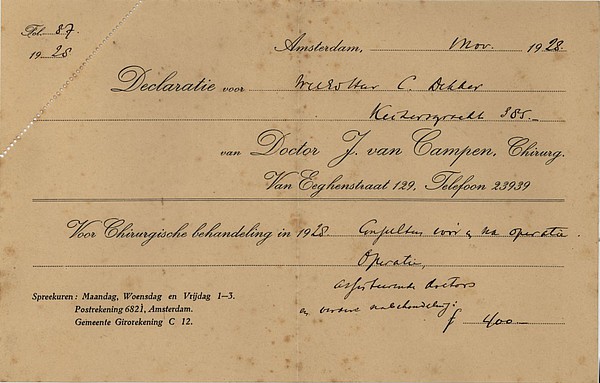 Fol. 87.
1928
Amsterdam, Nov. 1928.
Declaratie voor C. Dekker
Keizersgracht 385.-
van Doctor J. van Campen, Chirurg.
Van Eeghenstraat 129, Telefoon 23939
Voor Chirurgische behandeling in 1928. Consulten vóór en na operatie.
Operatie,
assisteerende doctors
en verdere nabehandeling:
Spreekuren: Maandag, Woensdag en Vrijdag 1—3.
Postrekening 6821, Amsterdam.
Gemeente Girorekening C 12.
f 400.-